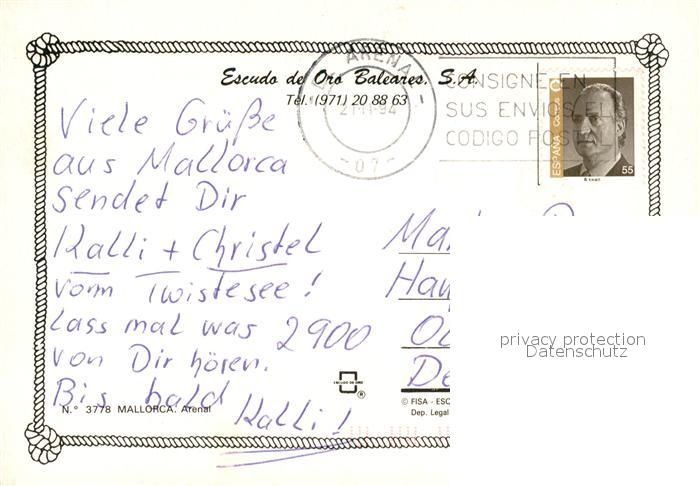 Escudo de Oro Baleares, S.A.
Tel. (971) 20 88 63
ARENAL
21-11-94
-07-
CONSIGNE EN
SUS ENVIOS EL
CODIGO POSTAL
ESPAÑA
55
Viele Grüße
aus Mallorca
sendet Dir
Kalli + Christel
vom Twistesee!
Lass mal was
von Dir hören.
Bis bald
Kalli!
2900
Ma
Hau
Ol
De
privacy protection
Datenschutz
ESCUDO DE ORO
®
N.° 3778 MALLORCA. Arenal
© FISA - ESC
Dep. Legal